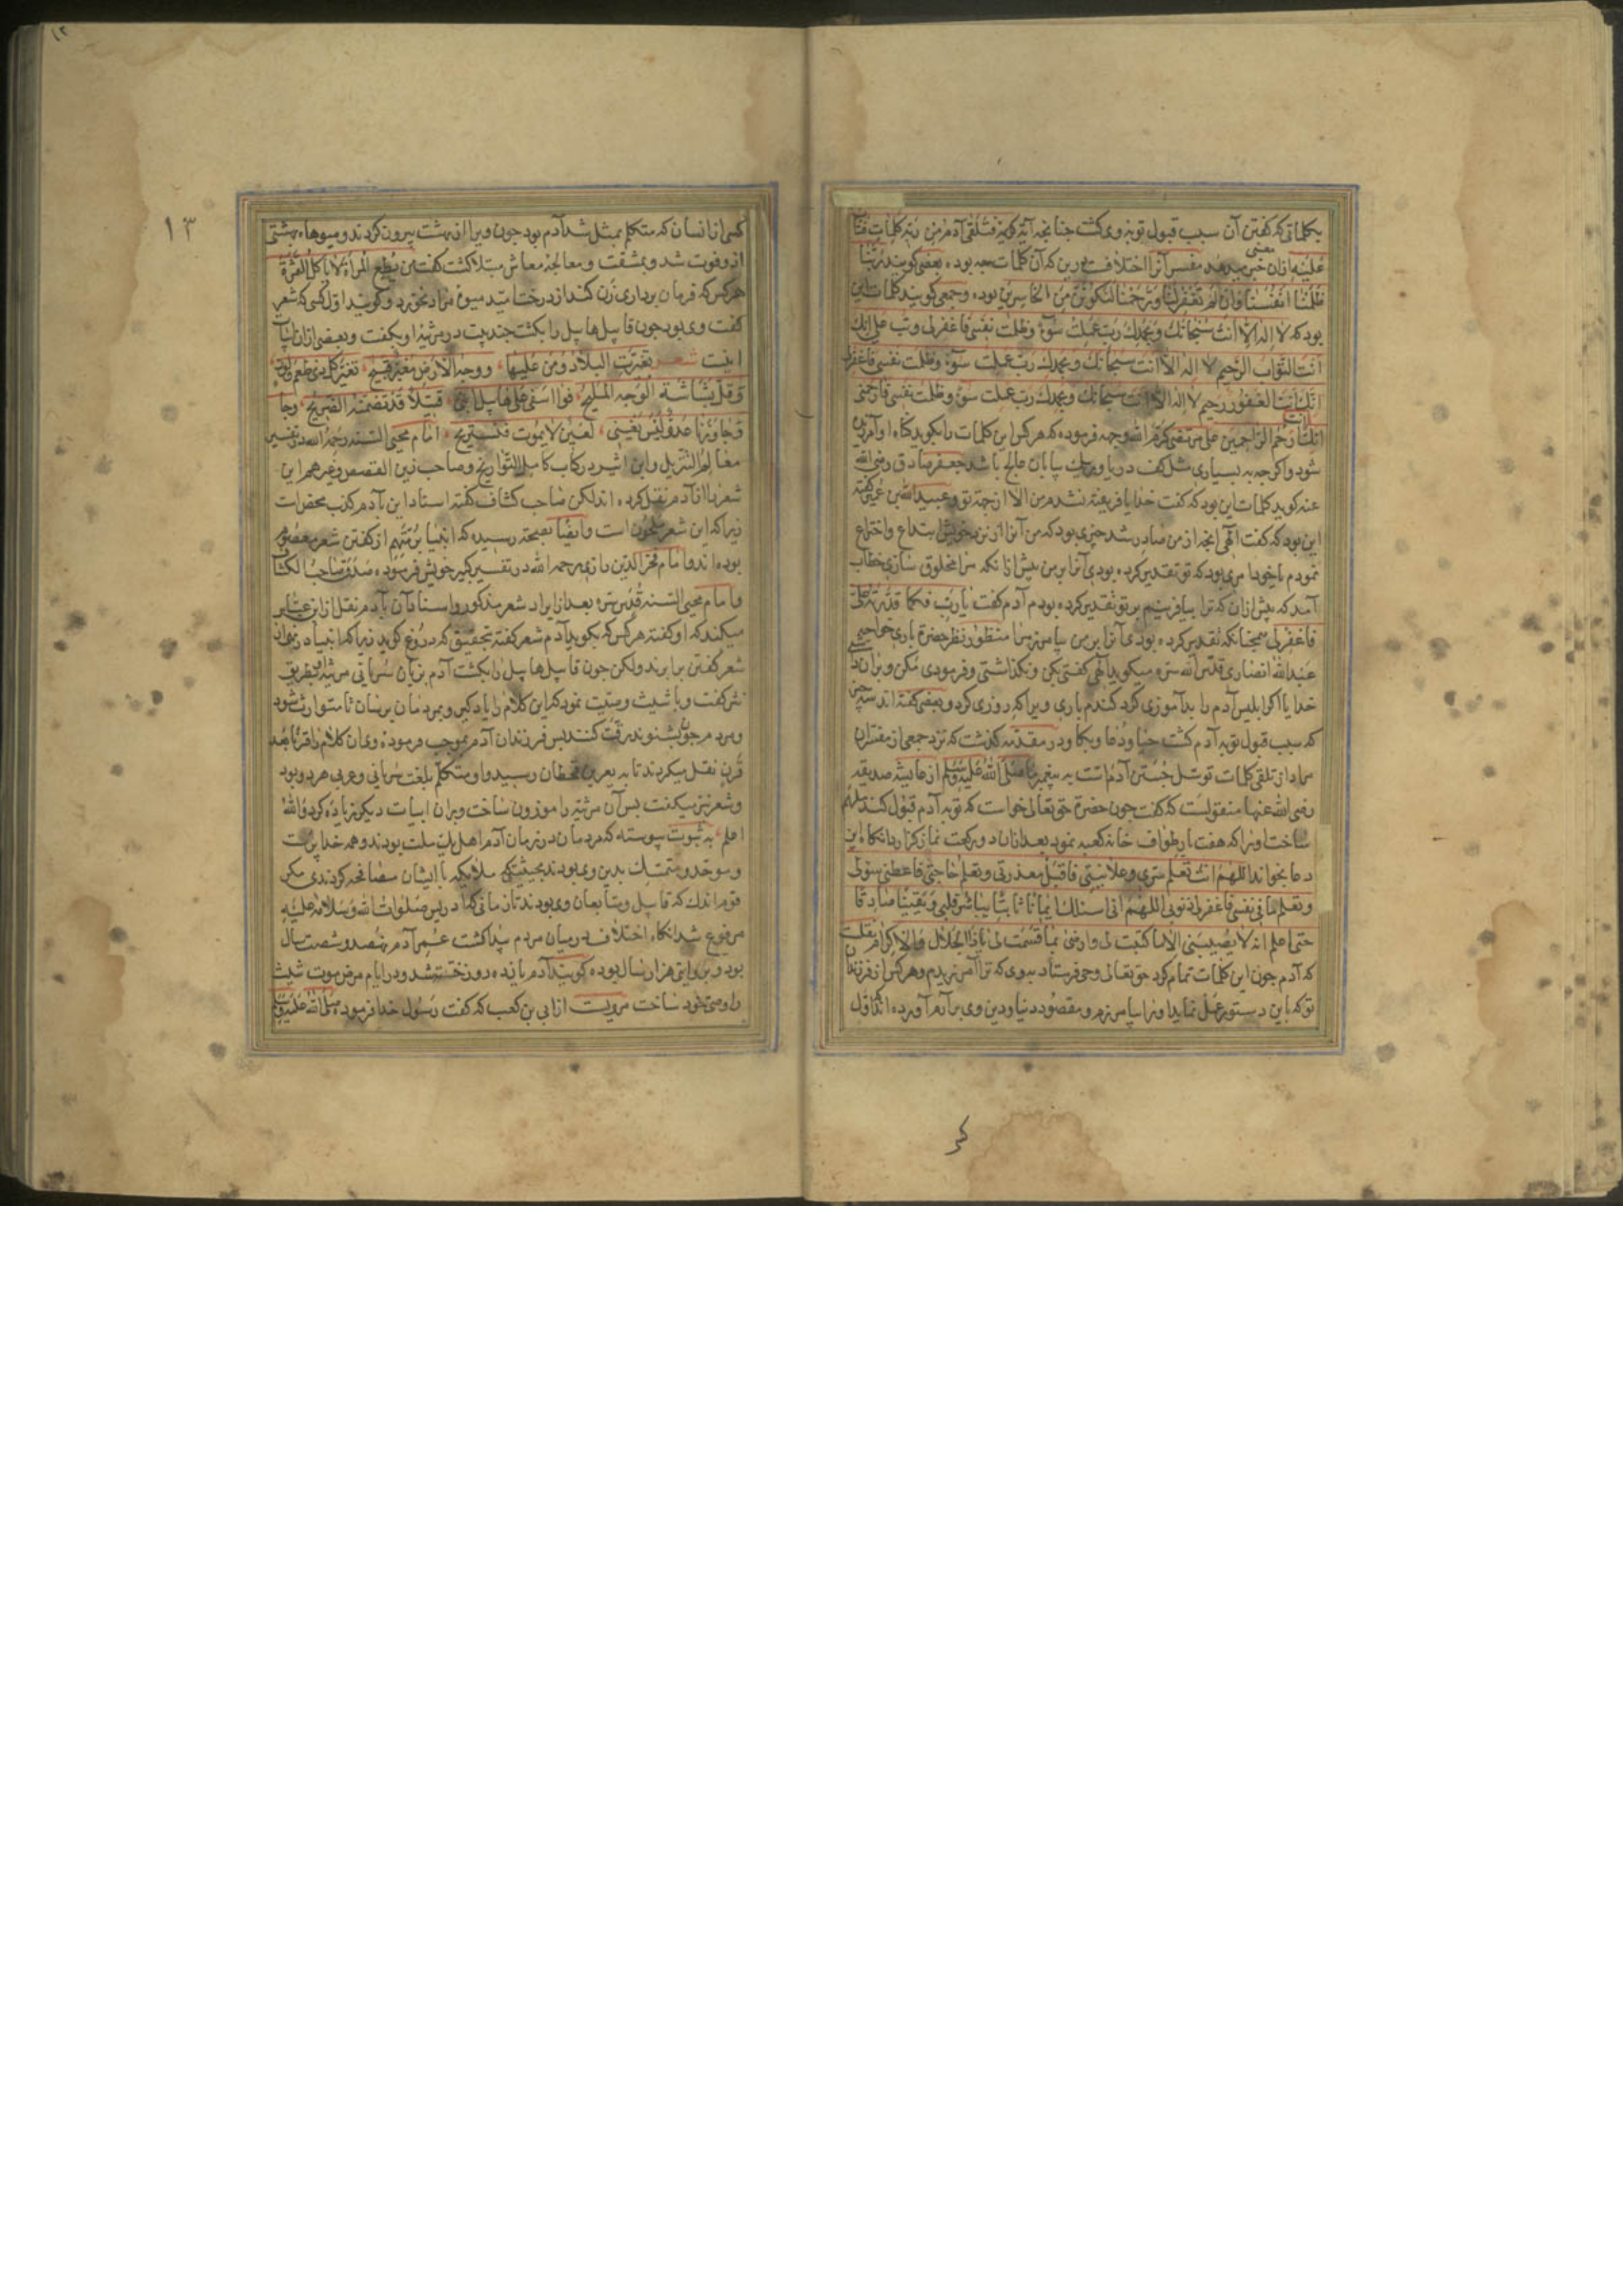 بکلماتی که گفتن آن سبب قبول توبهٔ وی گشت چنانچه آیهٔ کریمه فَتَلَقّی آدَمُ مِن رَبِّه کَلِماتٍ فَتابَ
عَلَیْهِ ازان خبر میدهد مفسرانرا اختلافست درین که آن کلمات چه بوده بعضی گویند رَبَّنا
ظَلَمْنا اَنْفُسَنا وَاِنْ لَمْ تَغْفِرْلَنا وَتَرْحَمْنا لَنَکُونَنَّ مِنَ الْخاسِرینَ بوده وجمعی گویند کلمات این
بود که لا اله الا انت سبحانک وبحمدک رب عملت سوء وظلمت نفسی فاغفرلی وتب علی انک
انت التواب الرحیم لا اله الا انت سبحانک وبحمدک رب عملت سوء وظلمت نفسی فاغفرلی
انک انت الغفور رحیم لا اله الا انت سبحانک وبحمدک رب عملت سوء وظلمت نفسی فارحمنی
انک ارحم الراحمین علی مرتضی کرم الله وجهه فرموده که هرکس این کلمات را بگوید کناه او آمرزیده
شود واکرچه به بسیاری مثل کف دریا وریک بیابان عالج باشد جعفر صادق رضی الله
عنه گوید کلمات این بود که گفت خدایا فریفته نشدم من الا از جهة تو وعبیدالله بن عمیر گفته
این بود که گفت الهی آنچه از من صادر شد چیزی بود که من آنرا از نزد خویش ابتداع واختراع
نمودم یا خود امری بود که تو تقدیر کرده بودی آنرا بر من پیش ازانکه مرا مخلوق سازی خطاب
آمد که پیش ازان که ترا بیافرینم بر تو تقدیر کرده بودم آدم گفت یا رب فکما قدرته علی
فاغفرلی همچنانکه تقدیر کرده بودی آنرا بر من بیامرز مرا منظور نظر حضرة باری خواجه
عبدالله انصاری قدس الله سره میکوید الهی گفتی مکن ونکذاشتی وفرمودی مکن وبران داشتی
خدایا اکر ابلیس آدم را بدآموزی کرد گندم باری ویرا که روزی کرد وبعضی گفته اند سه چیز
که سبب قبول توبه آدم گشت حیا ودعا وبکا ودر مقدمه گذشت که نزد جمعی از مفسران
مراد از تلقی کلمات توسل جستن آدم است به پیغمبر ما صلی الله علیه وسلم از عایشه صدیقه
رضی الله عنها منقولست که گفت چون حضرة حق تعالی خواست که توبه آدم قبول کند ملهم
ساخت اورا که هفت بار طواف خانه کعبه نمود بعدازان دو رکعت نماز گزارد انکاه این
دعا بخواند اللهم انک تعلم سری وعلانیتی فاقبل معذرتی وتعلم حاجتی فاعطنی سؤلی
وتعلم ما فی نفسی فاغفرلی ذنوبی اللهم انی اسئلک ایمانا ثابتا یباشر قلبی ویقینا صادقا
حتی اعلم انه لا یصیبنی الا ما کتبت لی وارضنی بما قسمت لی یا ذا الجلال والاکرام نقلست
که آدم چون این کلمات تمام کرد حق تعالی وحی فرستاد بدوی که ترا آمرزیدم وهر کس از فرزندان
تو که باین دستور عمل نماید اورا بیامرزم ومقصود دنیا ودین وی برآرم آورده اند که اول
کر
۱۳
کسی از انسان که متکلم بمثل شد آدم بود چون ویرا از بهشت بیرون کردند ومیوهاء بهشتی
ازو فوت شد وبمشقت ومعالجهٔ معاش مبتلا گشت گفت من یطع المرأة لا یأکل الثمرة
هرکس که فرمان برداری زن کند از درخت امید میوهٔ مراد نخورد وگویند اول کسی که شعر
گفت وی بود چون قابیل هابیل را بکشت چند بیت در مرثیهٔ او بگفت وبعضی ازان ابیات
اینست شعر تغیرت البلاد ومن علیها ووجه الارض مغبر قبیح تغیر کل ذی طعم ولون
وقل بشاشة الوجه الملیح فوا اسفی علی هابیل ابنی قتیلا قد تضمنه الضریح
وجاورنا عدو لیس یفنی لعین لا یموت فنستریح امام محیی السنه رحمه الله در تفسیر
معالم التنزیل وابن اثیر در کتاب کامل التواریخ وصاحب عین القصص وغیرهم این
شعر را از آدم نقل کرده اند لکن صاحب کشاف گفته اسناد این بآدم کذب محض است
زیرا که این شعر ملحون است وایضا بصحة رسیده که انبیا از گفتن شعر معصوم
بوده اند وامام فخرالدین رازی رحمه الله در تفسیر کبیر خویش فرموده صدق صاحب الکشاف
واما امام محیی السنه قدس سره بعد از ایراد شعر مذکور واسناد آن بآدم نقل از ابن عباس
میکند که او گفته هرکس که بگوید آدم شعر گفته بتحقیق که دروغ گوید زیرا که انبیا در نهی از
شعر گفتن برابرند ولکن چون قابیل هابیل را بکشت آدم بزبان سریانی مرثیهٔ بطریق
نثر گفت وبا شیث وصیت نمود که این کلام را یاد گیر وبمردمان برسان تا متوارث شود
ومردم چون بشنوند رقت کنند پس فرزندان آدم بموجب فرمودهٔ وی آن کلام را قرنا بعد
قرن نقل میکردند تا به یعرب بن قحطان رسید واو متکلم بلغت سریانی وعربی هر دو بود
وشعر نیز میگفت پس آن مرثیه را موزون ساخت وبران ابیات دیگر زیاده کرد والله
اعلم به ثبوت پیوسته که مردمان در زمان آدم اهل یک ملت بودند وهمه خداپرست
وموحد ومتمسک بدین وی بودند بحیثیتی که ملایکه با ایشان مصافحه کردندی مگر
قوم اندک که قابیل ومتابعان وی بودند تا زمانی که ادریس صلوات الله وسلامه علیه
مرفوع شد انکاه اختلاف در میان مردم پیدا گشت عمر آدم نهصد وشصت سال
بود وبروایتی هزار سال بوده گویند آدم یازده روز خسته شد ودر ایام مرض موت شیث
را وصی خود ساخت مرویست از ابی بن کعب که گفت رسول خدا فرموده صلی الله علیه وسلم